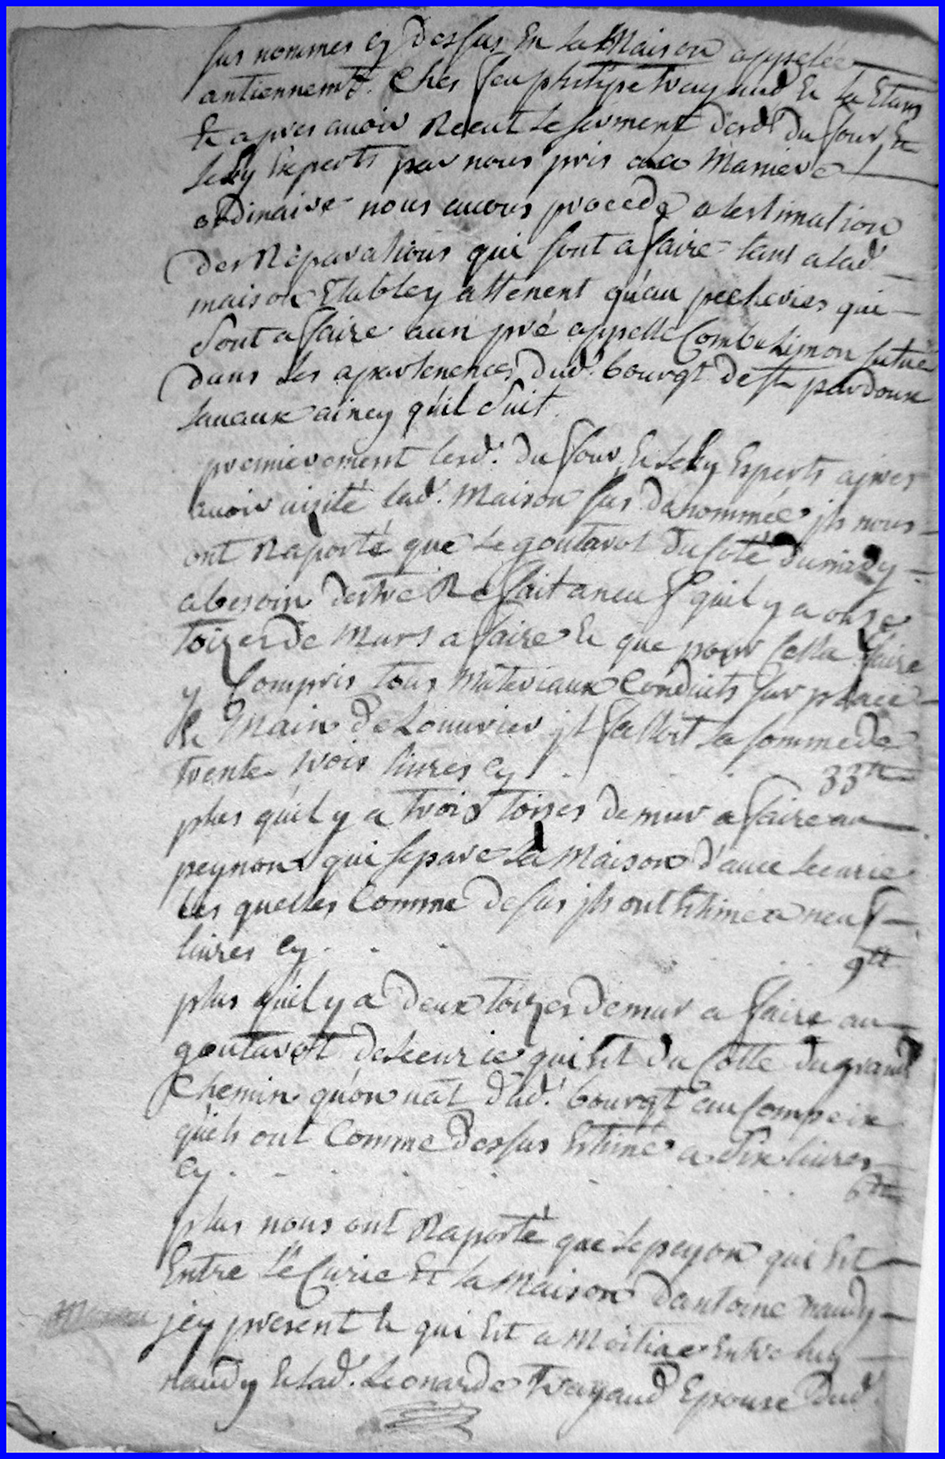 sus nommes cy dessus En la Maison appelée
antiennemt. Ches feu philipe trayaud Et la Etans
Et apres avoir Receut le serment desd. du four Et
Leky Experts par nous pris a la Maniere
ordinaire nous avons procede a lestimation
des Réparations qui sont a faire tant a lad.
maison Etable y attenent quau pecheries qui
sont a faire aun pré appelle Combe Limon situé
dans les apartenences dud. bourgt de st pardoux
lavaux aincy quil suit.
premierement lesd. du four Et Leky Experts apres
avoir visité lad. Maison sus denommée jls nous
ont Raporté que le goutarot du coté du midy
a besoin destre Refait a neuf quil y a onze
toizes de Murs a faire Et que pour cella faire
y Compris tous Materiaux Conduits sur place
Et Main de Louvrier jl falloit la somme de
trente trois livres cy . . 33tt
plus quil y a trois toises de mur a faire au
peynon qui separe la Maison d'avec lecurie
les quelles Comme dessus jls ont Estimé a neuf
livres cy . . . 9tt
plus quil y a deux toizes de mur a faire au
goutarot de lecurie qui est du Cotte du grand
Chemin quon vat dud. bourgt au Compeix
quils ont Comme dessus Estimé a six livres
cy . . . . 6tt
plus nous ont Raporté que le peyon qui Est
Entre lécurie Et la Maison dantoine naudy
jcy present Et qui Est a Moitiée Entre luy
naudy Et lad. Leonarde trayaud Epouse dud.